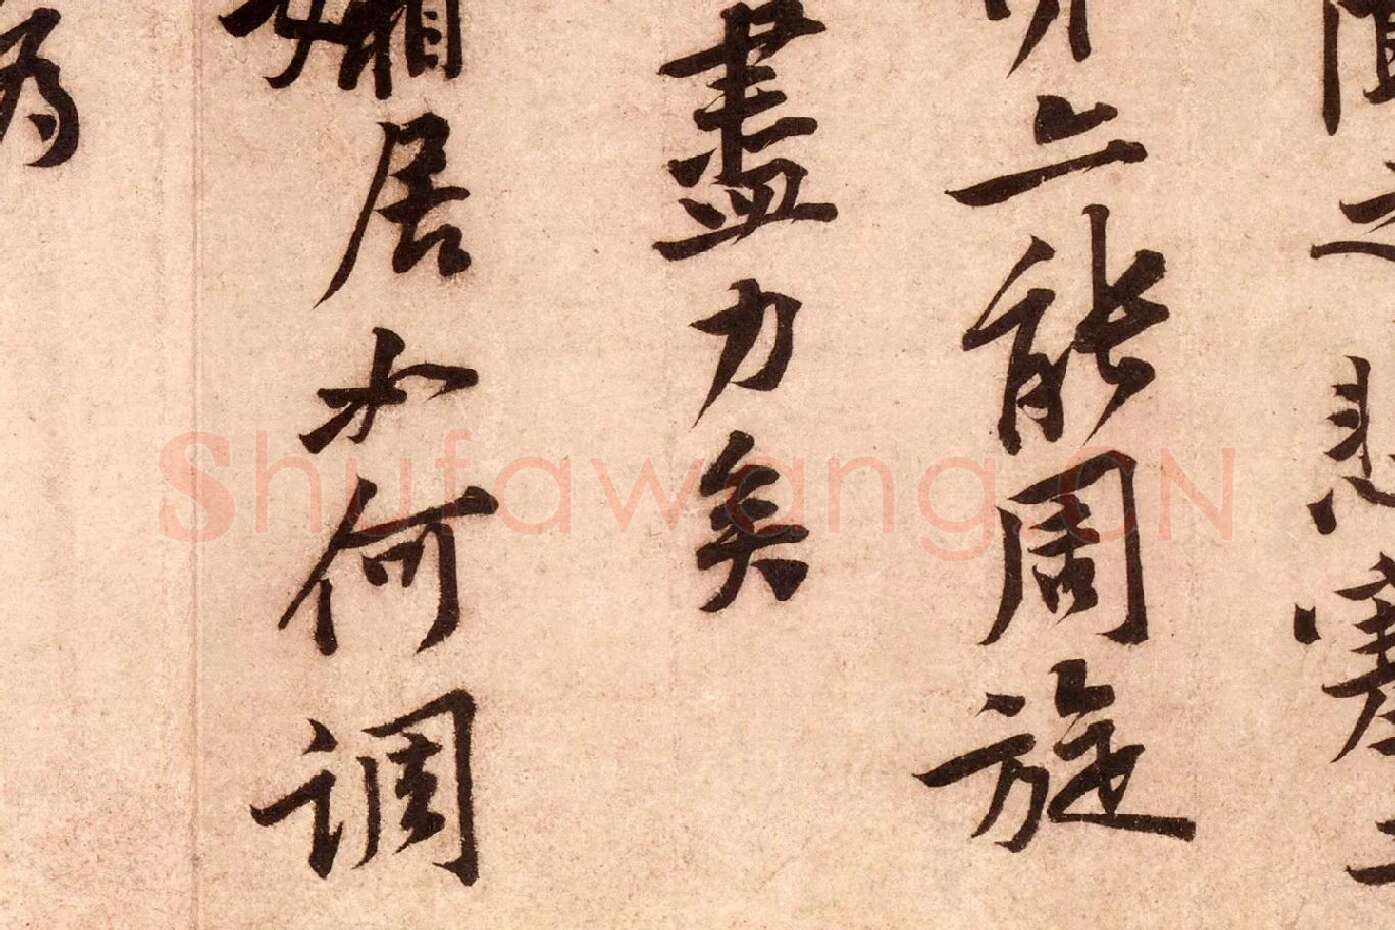 之悲塞
上能周旋
盡力矣
孀居如何調
Shufawang.CN